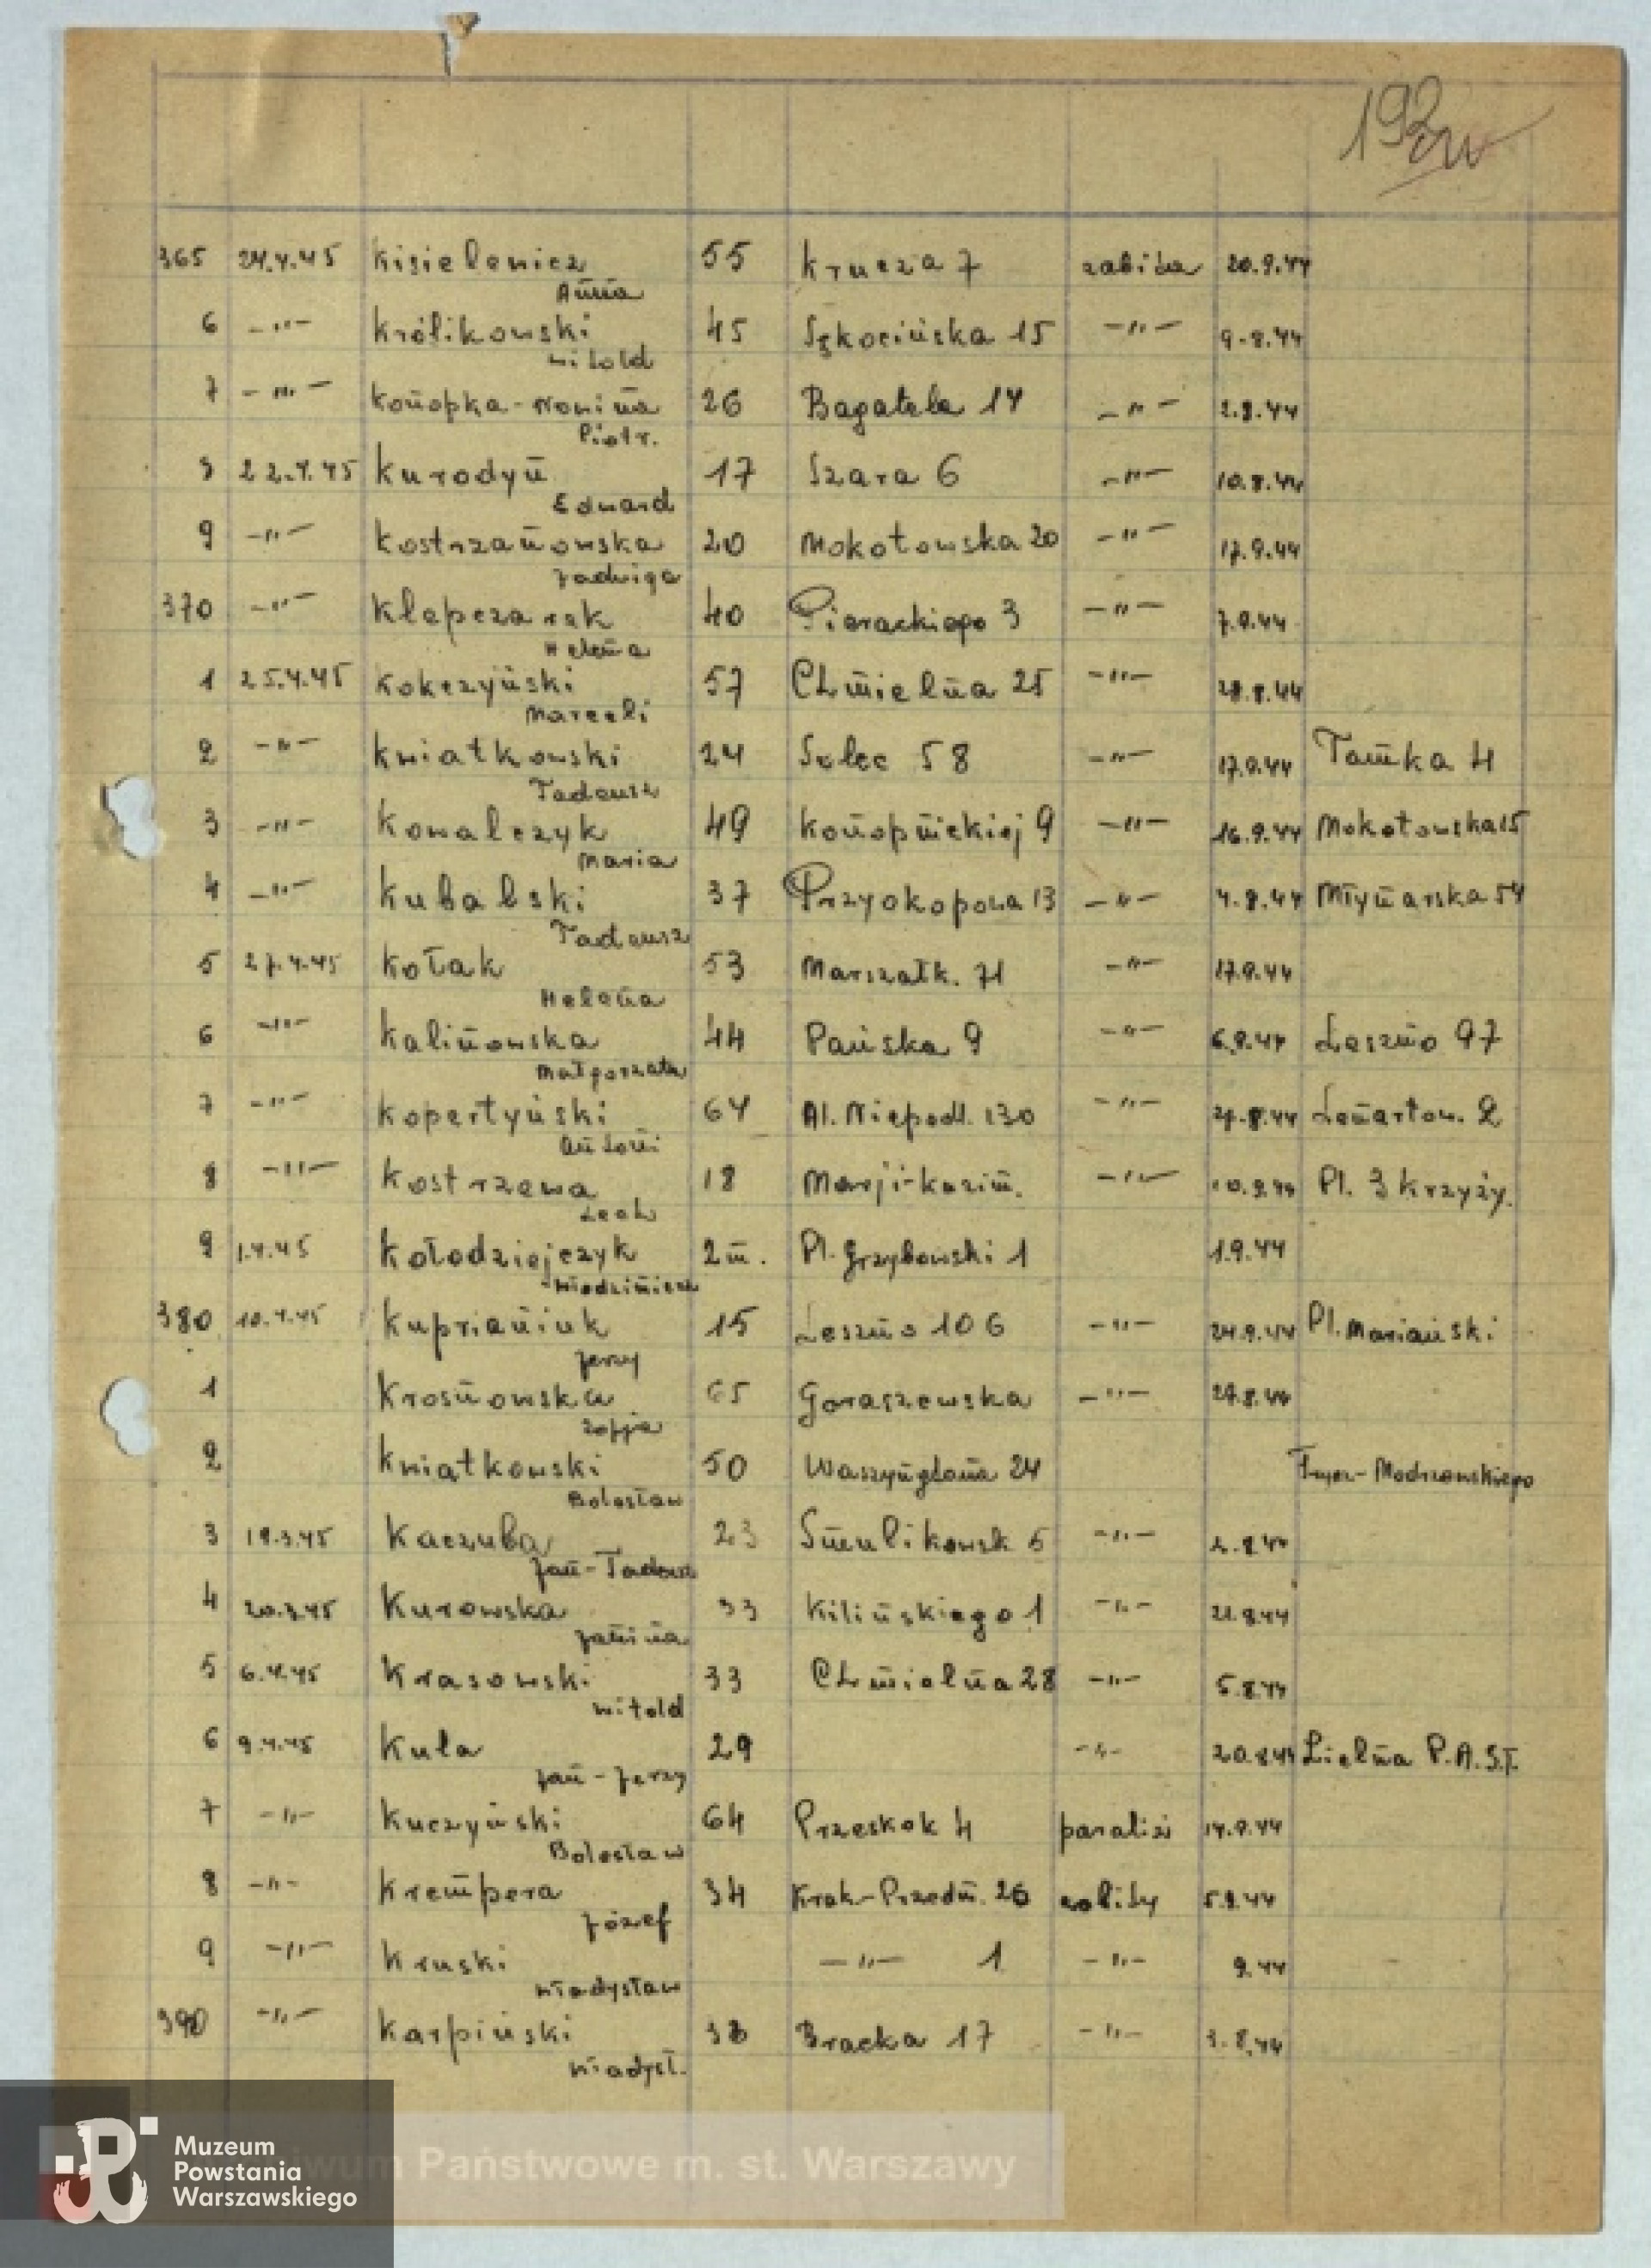 192
365 24.4.45 Kisielewicz 55 Krucza 7 zabita 20.9.44
Anna
6 -"- Królikowski 45 Sękocińska 15 -"- 9.8.44
Witold
7 -"- Konopka-Nowina 26 Bagatela 14 -"- 2.8.44
Piotr.
22.4.45 Kurodyn 17 Szara 6 -"- 10.8.44
Edward
9 -"- Kostrzanowska 20 Mokotowska 20 -"- 17.9.44
Jadwiga
370 -"- Klepczarek 40 Pierackiego 3 -"- 7.9.44
Helena
1 25.4.45 Kokczyński 57 Chmielna 25 -"- 28.8.44
Marceli
2 -"- Kwiatkowski 24 Solec 58 -"- 17.9.44 Tamka 4
Tadeusz
3 -"- Kowalczyk 49 Konopnickiej 9 -"- 16.9.44 Mokotowska 15
Maria
4 -"- Kubalski 37 Przyokopowa 13 -"- 4.8.44 Młynarska 54
Tadeusz
5 27.4.45 Kołak 53 Marszałk. 71 -"- 17.9.44
Helena
6 -"- Kalinowska 44 Pańska 9 -"- 6.9.44 Leszno 97
Małgorzata
7 -"- Kopertyński 64 Al. Niepodl. 130 -"- 27.8.44 Lenartow. 2
Antoni
8 -"- Kostrzewa 18 Marji-Kazim. -"- 10.9.44 Pl. 3 Krzyży.
Lech
9 1.4.45 Kołodziejczyk 2 m. Pl. Grzybowski 1 1.9.44
Włodzimierz
380 10.4.45 Kuprianiuk 15 Leszno 106 -"- 24.9.44 Pl. Mariański
Jerzy
1 Krosnowska 65 Goraszewska -"- 27.8.44
Zofja
2 Kwiatkowski 50 Waszyngtona 24 Frycz-Modrzewskiego
Bolesław
3 19.3.45 Kaczuba 23 Smulikowsk 5 -"-
Jan-Tadeusz
4 20.3.45 Kurowska 33 Kilińskiego 1 -"- 21.8.44
Janina
5 6.4.45 Krasowski 33 Chmielna 28 -"- 5.8.44
Witold
6 9.4.45 Kula 29 -"- 20.8.44 Zielna P.A.S.T.
Jan-Jerzy
7 -"- Kuczyński 64 Przeskok 4 paraliż 14.9.44
Bolesław
8 -"- Krempera 34 Krak-Przedm. 26 zabity 5.9.44
Józef
9 -"- Kruski -"- 1 -"- 9.44
Władysław
390 -"- Karpiński 38 Bracka 17 -"- 3.8.44
Władysł.
Muzeum
Powstania
Warszawskiego
wum Państwowe m. st. Warszawy